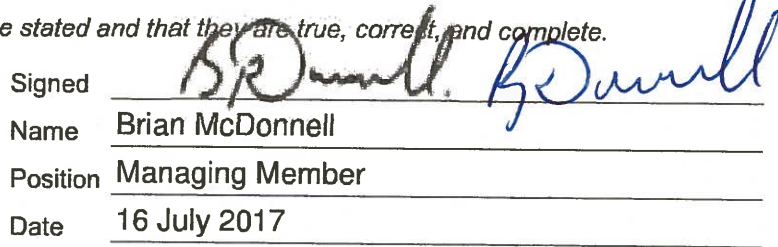 e stated and that they are true, correct, and complete.
Signed
Name Brian McDonnell
Position Managing Member
Date 16 July 2017